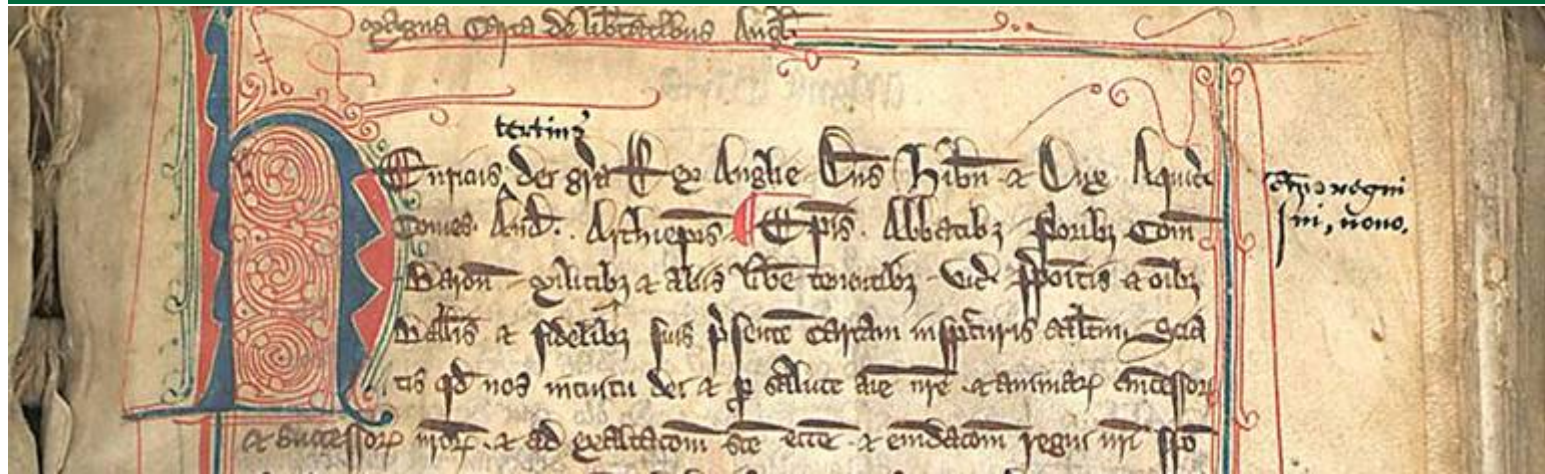 Magna Carta de lib̄tatibus Angl̄
tertius
HEnricus dei gr̄a Rex Anglie Dn̄s Hib̄n & Dux Aquit̄
Comes And̄. Archiep̄is Ep̄is. Abbatibȝ p̄oribȝ Com̄
Baron̄ militibȝ & aliis lib̄e tenentibȝ Vic̄ p̄poitis & oībȝ
Ball̄is & fidelibȝ suis p̄sente Cartam insp̄cturis salt̄m Scia
tis qd̄ nos intuitu dei & p̄ salute aīe nr̄e & animaꝝ antecessoꝝ
& successoꝝ nr̄oꝝ & ad exaltac̄om sc̄e ecc̄e & emdac̄om regni nr̄i spo
regni
sui, nono.